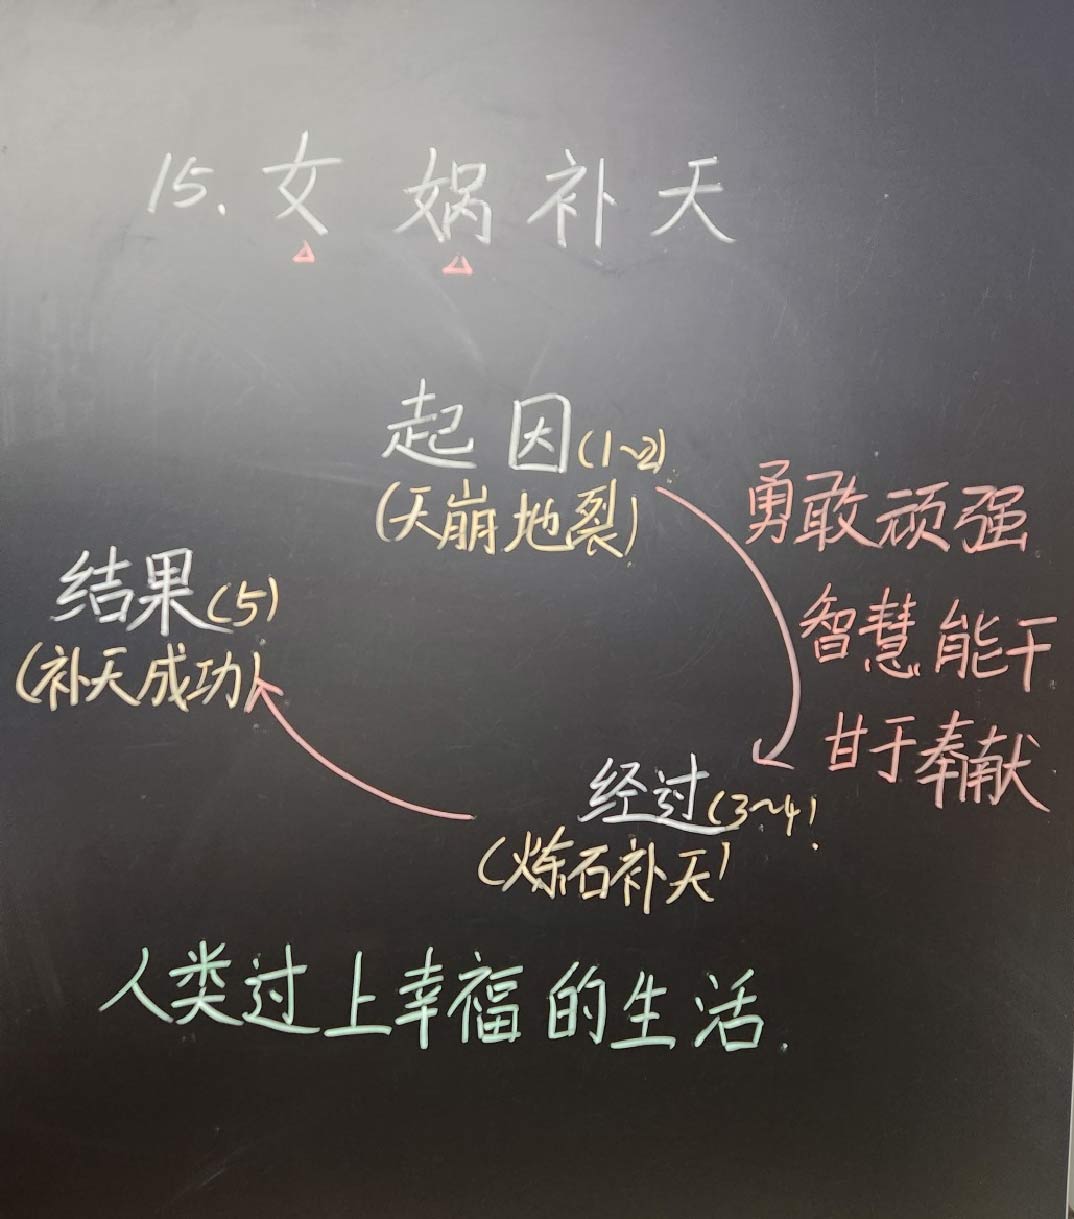 15.女娲补天
起因(1~2)
(天崩地裂)
勇敢顽强
智慧能干
甘于奉献
结果(5)
(补天成功)
经过(3~4)
(炼石补天)
人类过上幸福的生活.